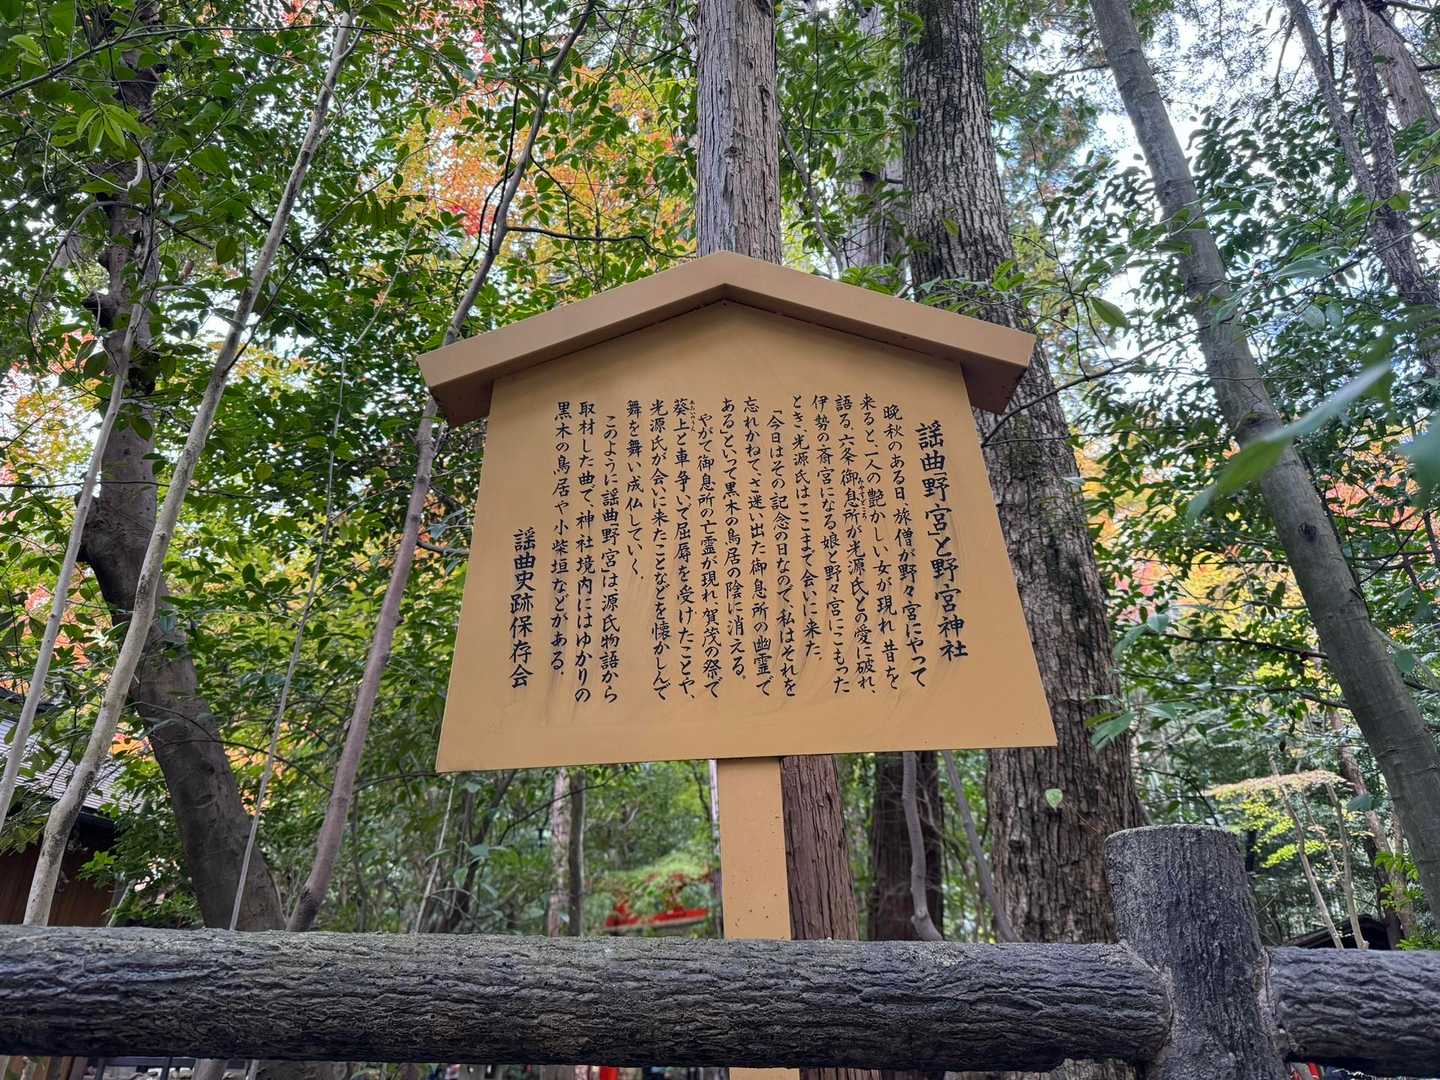 謡曲「野宮」と野宮神社
晩秋のある日、旅僧が野々宮にやって
来ると、一人の艶かしい女が現れ、昔を
語る。六条御息所が光源氏との愛に破れ、
みやすどころ
伊勢の斎宮になる娘と野々宮にこもった
とき、光源氏はここまで会いに来た。
「今日はその記念の日なので、私はそれを
忘れかねて、さ迷い出た御息所の幽霊で
ある」といって黒木の鳥居の陰に消える。
やがて御息所の亡霊が現れ、賀茂の祭で
葵上と車争いで屈辱を受けたことや、
あおいのうえ
光源氏が会いに来たことなどを懐かしんで
舞を舞い成仏していく。
このように謡曲「野宮」は源氏物語から
取材した曲で、神社境内にはゆかりの
黒木の鳥居や小柴垣などがある。
謡曲史跡保存会